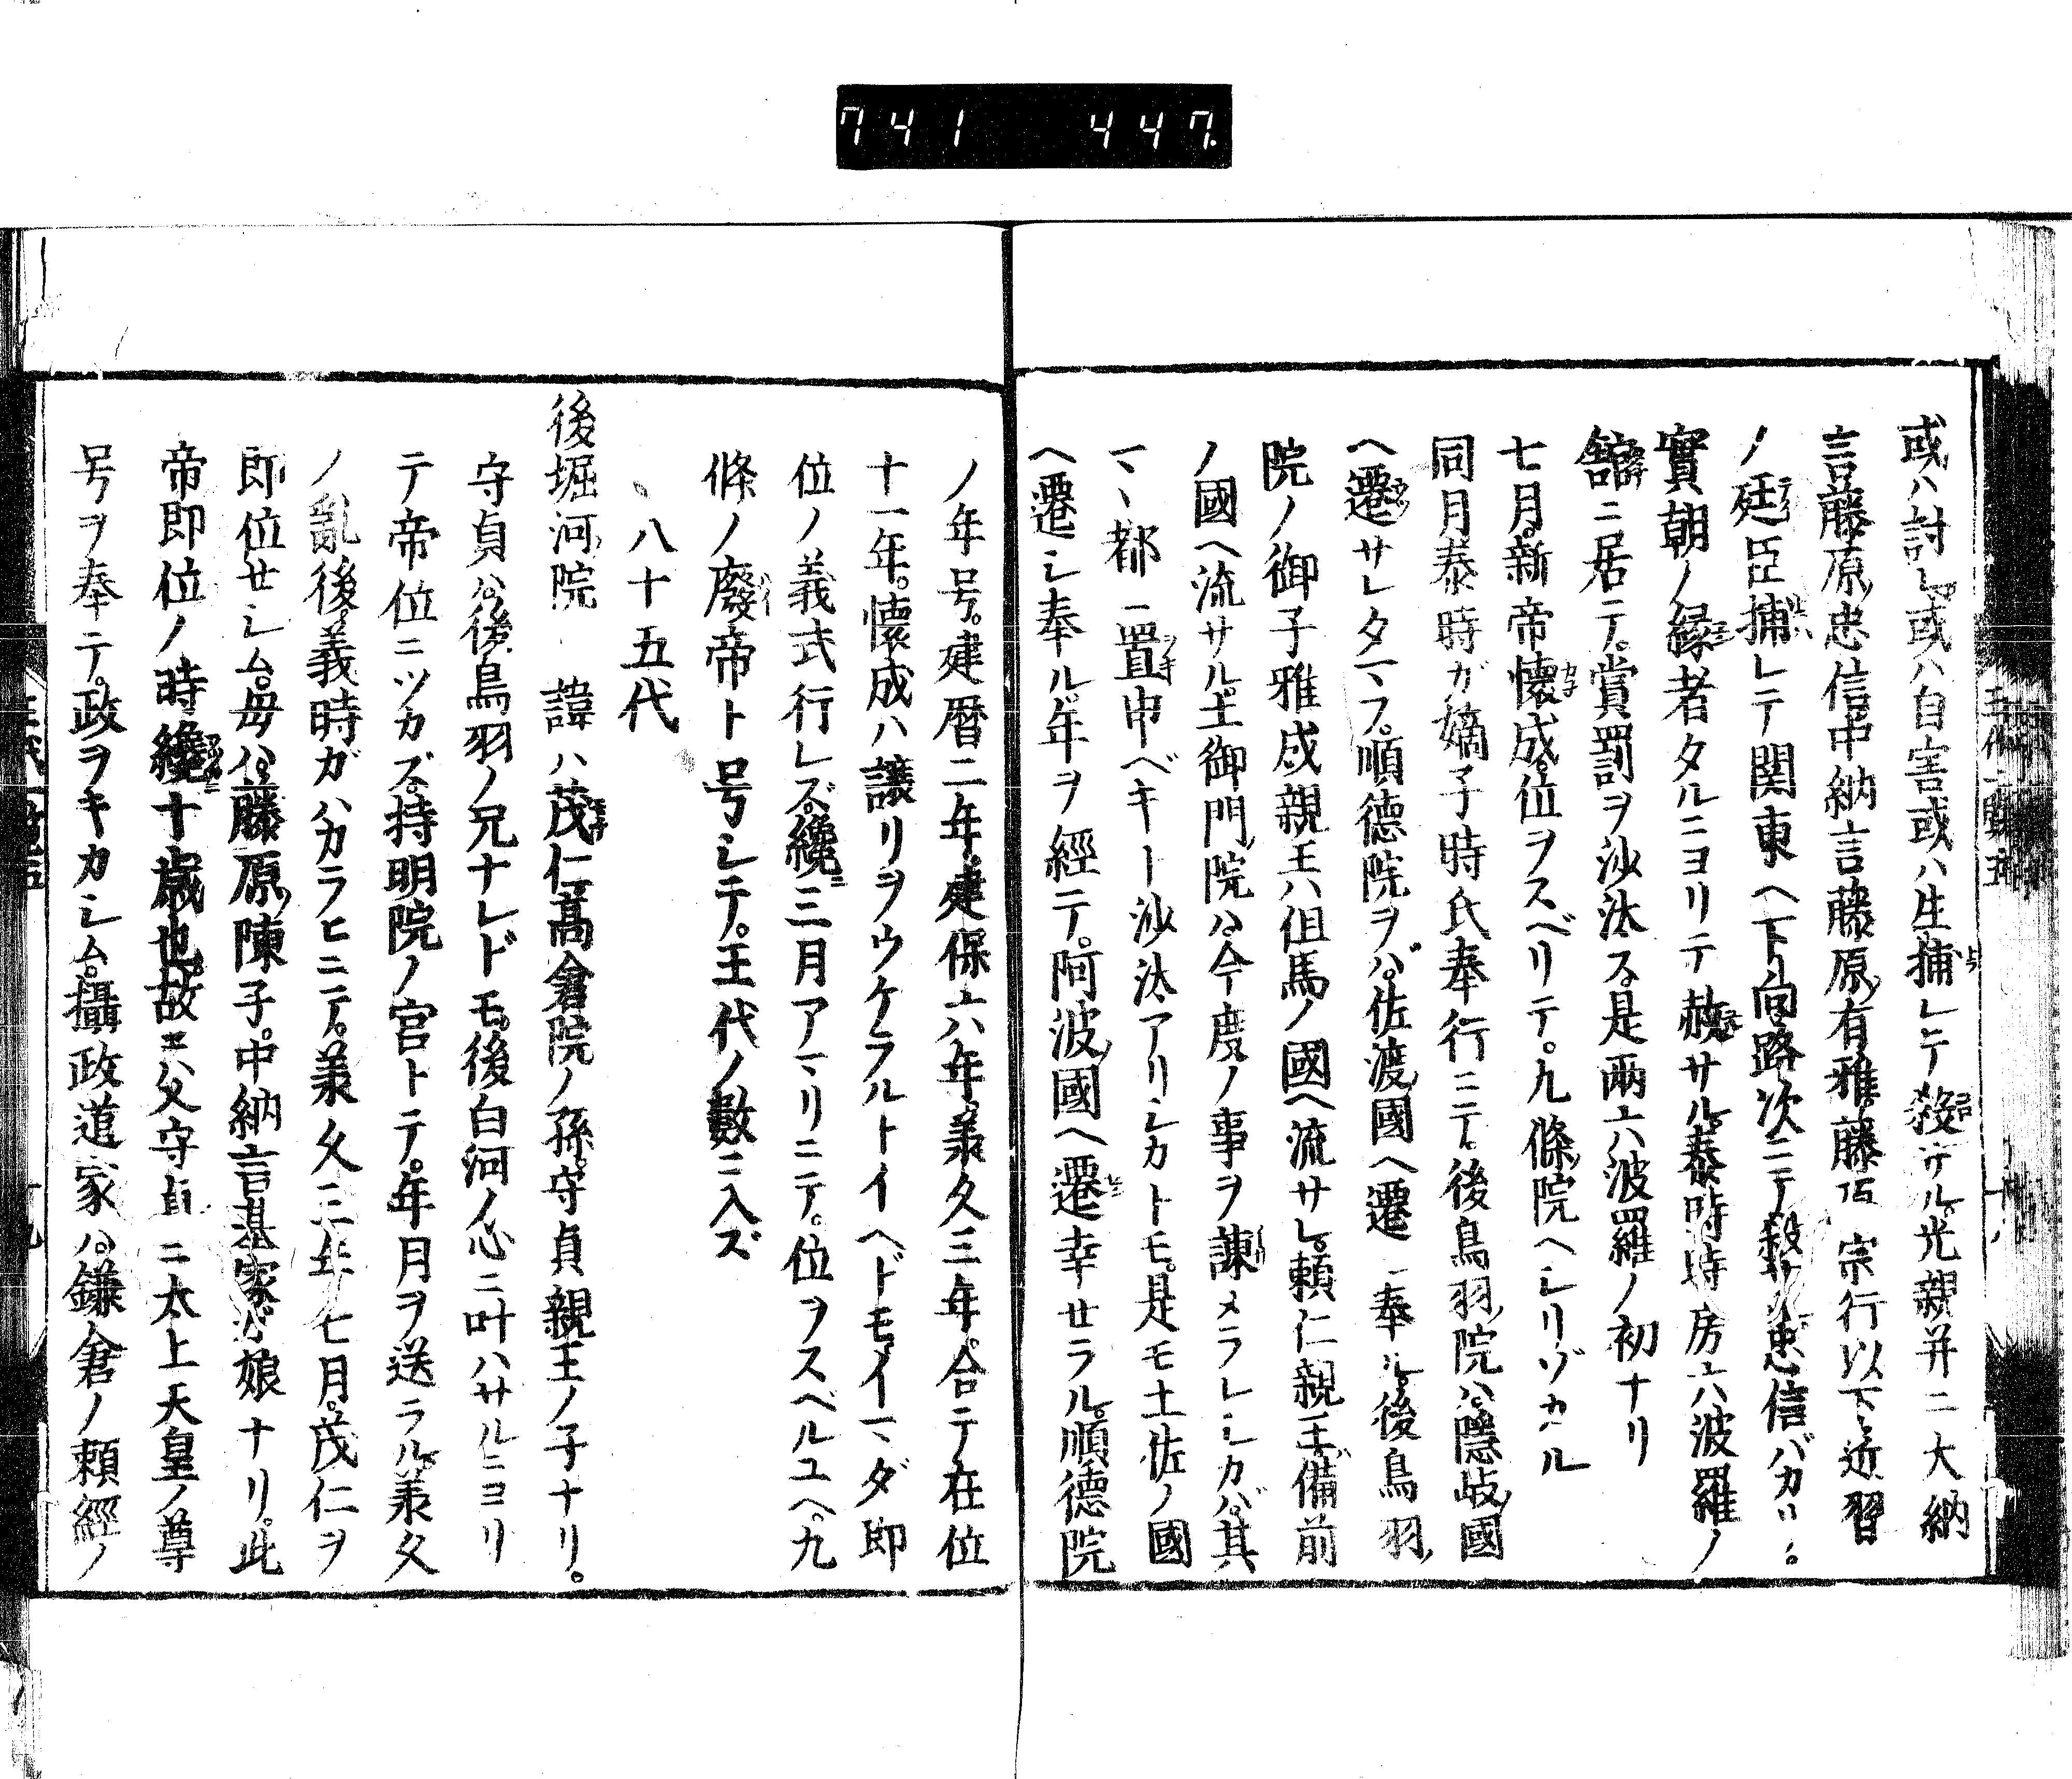 741 447
或ハ討レ或ハ自害或ハ生捕レテ殺サル。光親并ニ大納
言藤原忠信中納言藤原有雅藤原宗行以下近習
ノ廷臣捕レテ関東ヘ下向路次ニテ殺サル忠信バカリ。
實朝ノ縁者タルニヨリテ赦サル。泰時時房六波羅ノ
舘ニ居テ。賞罰ヲ沙汰ス是兩六波羅ノ初ナリ
七月。新帝懐成。位ヲスベリテ。九條院ヘシリゾカル
同月泰時ガ嫡子時氏奉行ニテ後鳥羽院ハ隱岐國
ヘ遷サレタマフ。順德院ヲバ。佐渡國ヘ遷シ奉ル。後鳥羽
院ノ御子雅成親王ハ但馬ノ國ヘ流サレ。頼仁親王備前
ノ國ヘ流サル土御門院ハ今度ノ事ヲ諫メラレシカバ其
マヽ都ニ置申ベキト沙汰アリシカトモ。是モ土佐ノ國
ヘ遷シ奉ル。年ヲ經テ。阿波國ヘ遷幸セラル。順德院
ノ年号。建曆二年。建保六年。兼久三年。合テ在位
十一年。懐成ハ讓リヲウケラルトイヘドモ。イマダ即
位ノ義式行レズ。纔三月アマリニテ。位ヲスベルユヘ。九
條ノ廢帝ト号シテ。王代ノ數ニ入ズ
八十五代
後堀河院 諱ハ茂仁高倉院ノ孫。守貞親王ノ子ナリ。
守貞ハ後鳥羽ノ兄ナレドモ。後白河ノ心ニ叶ハサルニヨリ
テ帝位ニツカズ。持明院ノ宮トテ。年月ヲ送ラル。兼久
ノ亂後。義時ガハカラヒニテ。兼久三年七月。茂仁ヲ
即位セシム。母ハ藤原陳子。中納言基家ガ娘ナリ。此
帝即位ノ時纔十歳也。故ニ父守貞ニ太上天皇ノ尊
号ヲ奉テ。政ヲキカシム。攝政道家ハ。鎌倉ノ頼經ノ